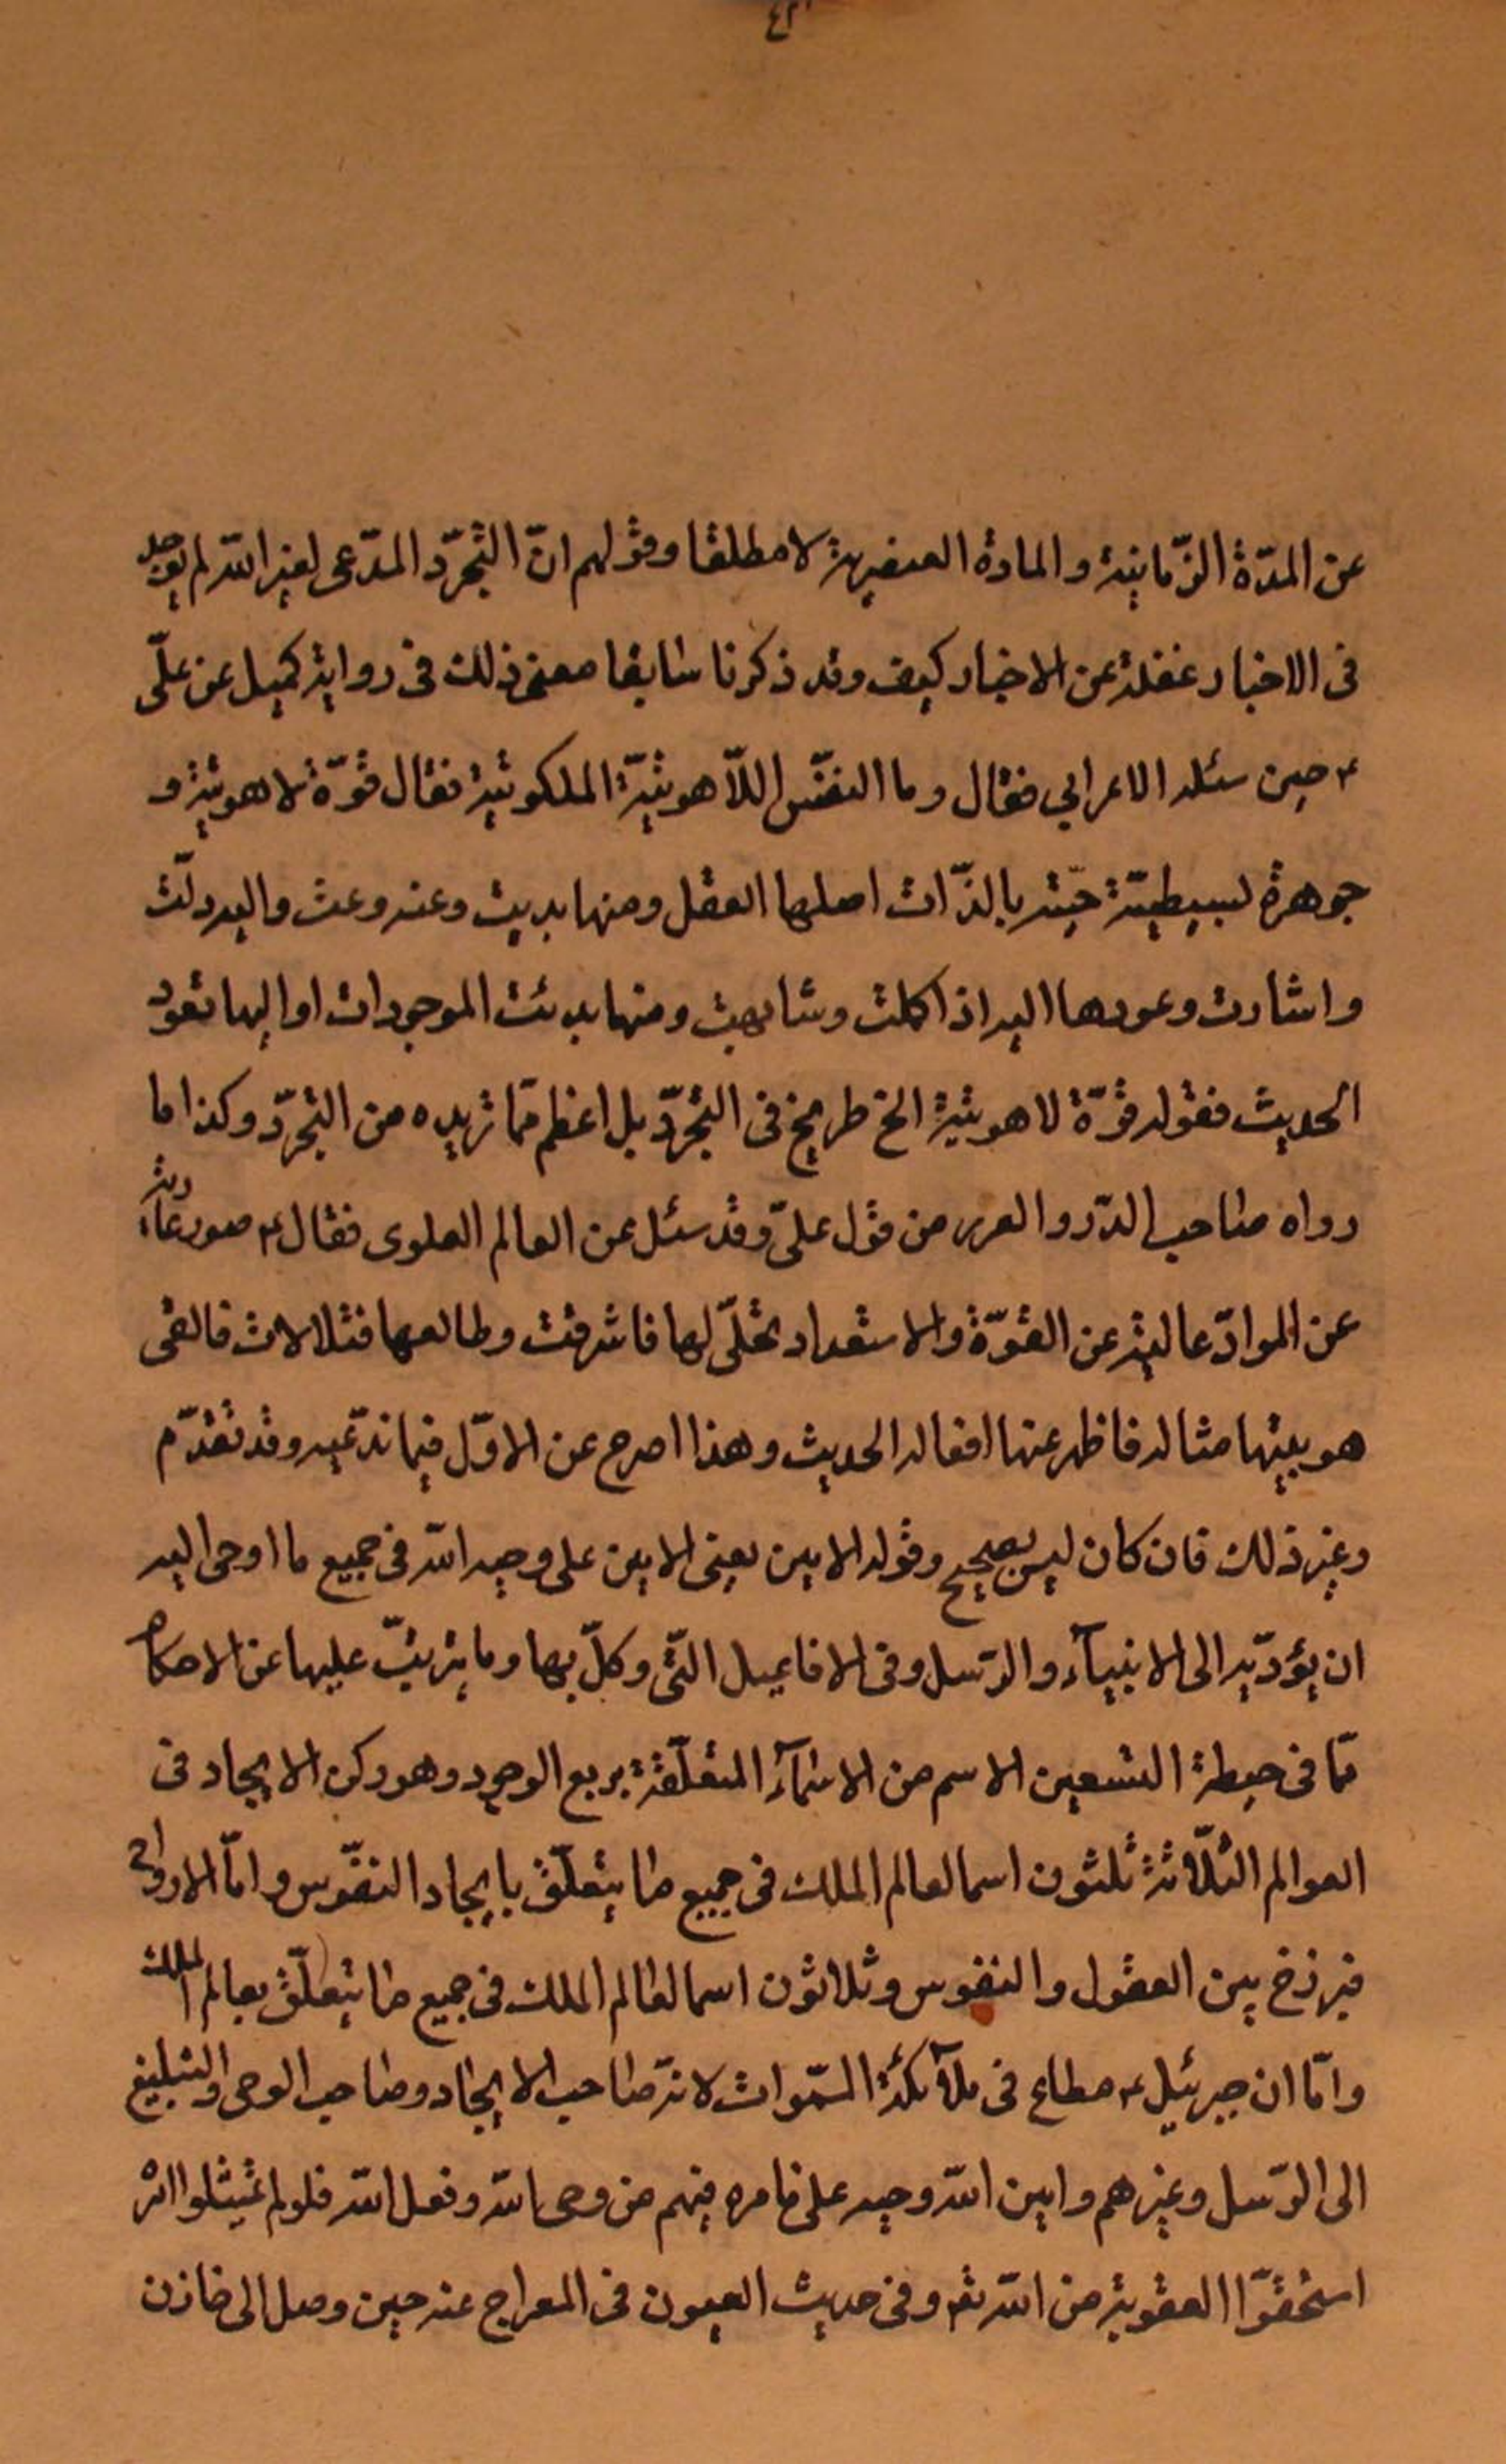 عن المدّة الزّمانية والمادة العنصرية لا مطلقا وقولهم انّ التجرّد المدّعى لغير الله لم يوجد
فى الاخبار غفلة عن الاخبار كيف وقد ذكرنا سابقا معنى ذلك فى رواية كميل عن علىّ
ع حين سئله الاعرابي فقال وما النفس اللّاهوتيّة الملكوتية فقال قوّة لاهوتية و
جوهرة بسيطيّة حيّة بالذّات اصلها العقل ومنها بديت وعنه وعت واليه دلّت
واشارت وعودها اليه اذا كلت وشابهت ومنها بدئت الموجودات او اليها تعود
الحديث فقوله قوّة لاهوتية الخ صريح فى التجرّد بل اعظم ممّا تريده من التجرّد وكذا ما
رواه صاحب الدّرر والغرر من قول علىّ وقد سئل عن العالم العلوى فقال ع صور عارية
عن الموادّ عالية عن القوّة والاستعداد تجلّى لها فاشرقت وطالعها فتلالات فالقى
هويتها مثاله فاظهر عنها افعاله الحديث وهذا اصرح عن الاوّل فيما ندّعيه وقد تقدّم
وغير ذلك فان كان ليس بصحيح وقوله الامين يعنى الامين على وحيه الله فى جميع ما اوحى اليه
ان يؤدّيه الى الانبيآء والرّسل وفى الافاعيل الّتى وكلّ بها وما يترتّب عليها عن الاحكام
ممّا فى حيطة التسعين الاسم من الاسمآء المتعلّقة بربع الوجود وهو ركن الايجاد فى
العوالم الثّلاثة ثلثون اسما لعالم الملك فى جميع ما يتعلّق بايجاد النفوس وامّا الارواح
فبرزخ بين العقول والنفوس وثلاثون اسما لعالم الملك فى جميع ما يتعلّق بعالم الملك
وامّا ان جبرئيل ع مطاع فى ملآئكة السّموات لانّه صاحب الايجاد وصاحب الوحى والتبليغ
الى الرّسل وغيرهم وامين الله وحيه على ما امره فيهم من وحى الله وفعل الله فلو لم يمتثلوا امره
استحقّوا العقوبة من الله تعه وفى حديث العيون فى المعراج عنه حين وصل الى خازن